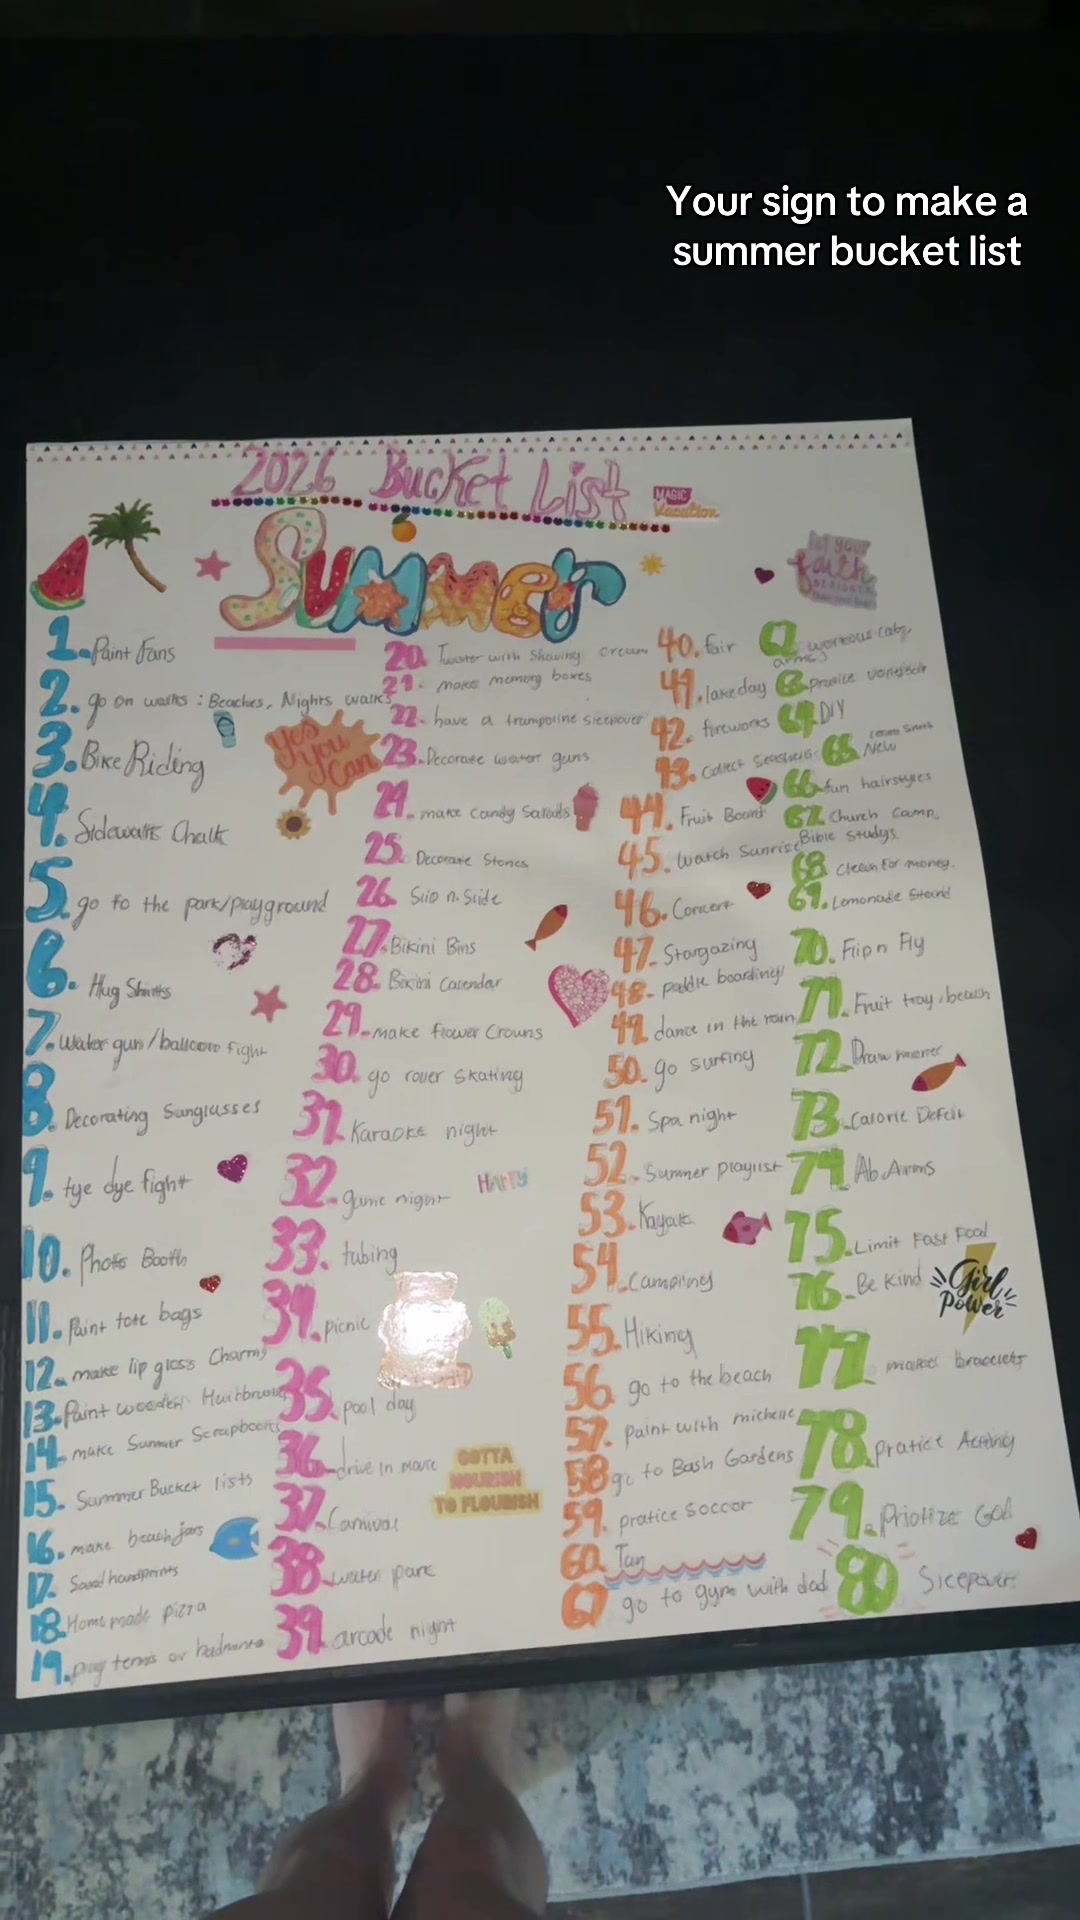 Your sign to make a
summer bucket list
2026 Bucket List
MAGIC
Vacation
Summer
let your
faith
1. Paint Fans
2. go on walks : Beaches, Nights walks
Yes
You
Can
3. Bike Riding
4. Sidewalk Chalk
5. go to the park/playground
6. Hug Shirts
7. Water gun/balloon fight
8. Decorating Sunglasses
9. tye dye fight
10. Photo Booth
11. Paint tote bags
12. make lip gloss Charms
13. Paint wooden Hairbrush
14. make Summer Scrapbooks
15. Summer Bucket lists
16. make beach jars
17. Sand handprints
18. Homemade pizza
19. play tennis or badminton
20. Twister with Shaving cream
21. make memory boxes
22. have a trampoline sleepover
23. Decorate water guns
24. make Candy Salads
25. Decorate Stones
26. Slip n Slide
27. Bikini Bins
28. Bikini Calendar
29. make flower Crowns
30. go roller skating
31. Karaoke night
32. game night
HAPPY
33. tubing
34. picnic
35. pool day
36. drive in movie
GOTTA
NOURISH
TO FLOURISH
37. Carnival
38. water park
39. arcade night
40. fair
41. lake day
42. fireworks
43. Collect Seashells
44. Fruit Board
45. Watch Sunrise
46. Concert
47. Stargazing
48. paddle boarding
49. dance in the rain
50. go surfing
51. Spa night
52. Summer playlist
53. Kayak
54. Camping
55. Hiking
56. go to the beach
57. paint with michelle
58 go to Bash Gardens
59. pratice soccor
60. Tan
61 go to gym with dad
arms
64. DIY
65. New
66. fun hairstyles
67. Church Camp,
Bible Studys
68 Clean for money.
69. Lemonade Stand
70. Flip n Fly
71. Fruit tray, beach
72. Draw
73. Calorie Deficit
74. Ab Arms
75. Limit Fast Food
76. Be kind
Girl
Power
77. bracelets
78. Pratice Acting
79. Priotize God
80 Sleepover